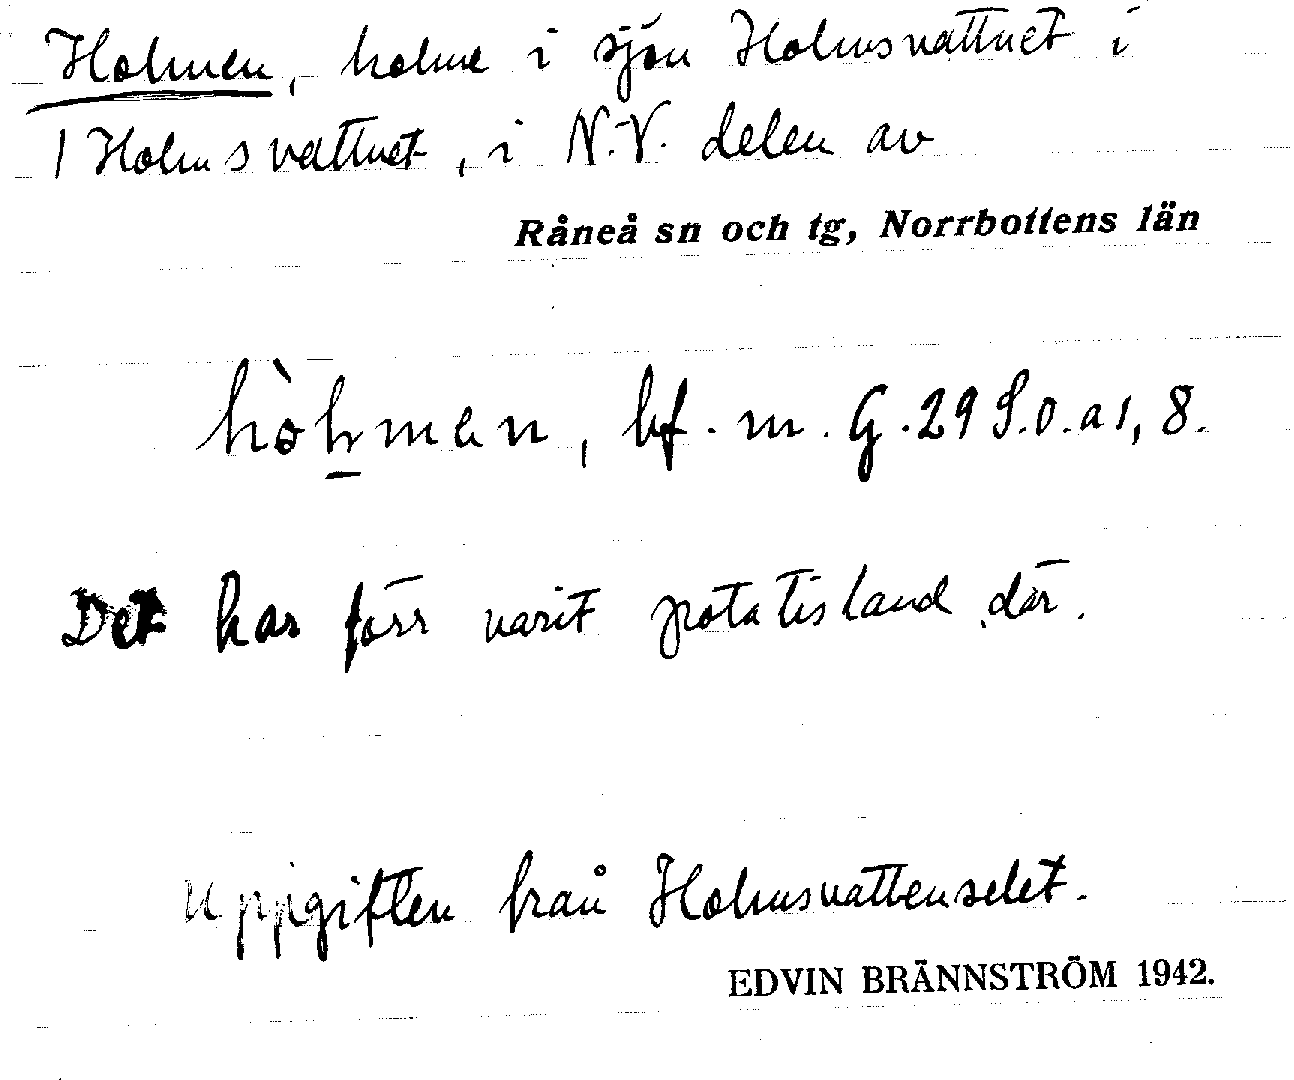 Holmen, holme i sjön Holmsvattnet i
/ Holmsvattnet, i N.V. delen av
Råneå sn och tg, Norrbottens län
hòlmen, bf. m. G. 29 S.O. a 1, 8.
Det har förr varit potatisland där.
Uppgiften från Holmsvattenselet.
EDVIN BRÄNNSTRÖM 1942.